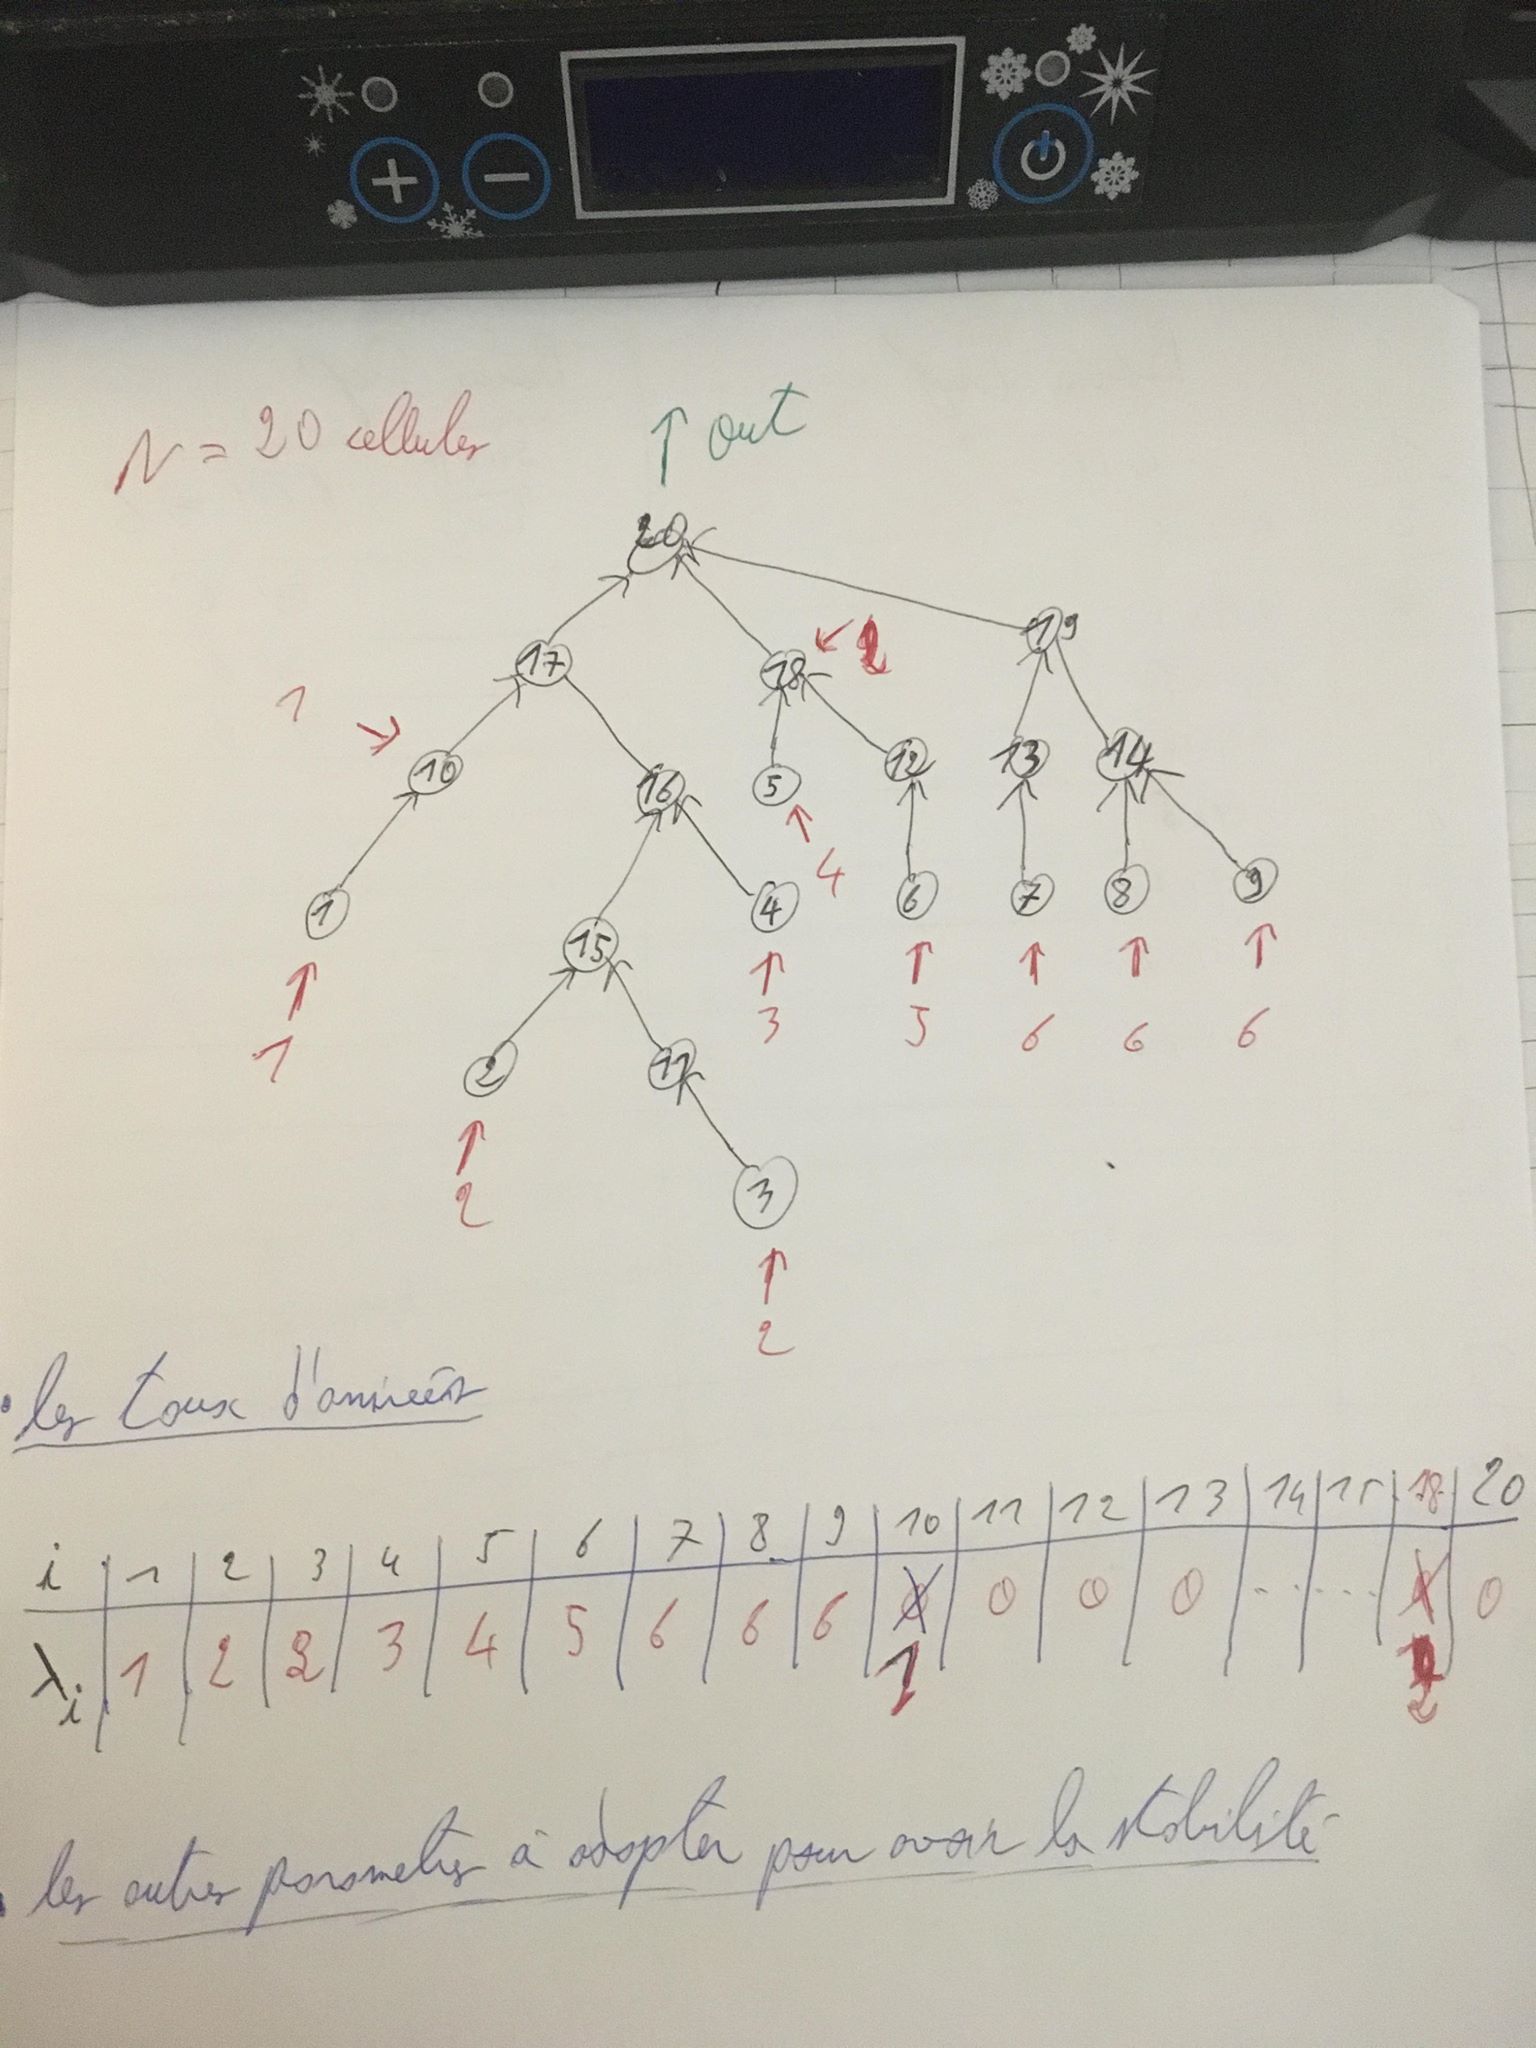 N = 20 cellules
↑ out
20
19
17
18 ← 2
1 →
10
16
5
12
13
14
4
1
15
4
6
7
8
9
1
2
11
3
5
6
6
6
2
3
2
les taux d'arrivées
i 1 2 3 4 5 6 7 8 9 10 11 12 13 14 15 18 20
λi 1 2 2 3 4 5 6 6 6 0 0 0 0 ...... 0 0
1 2
les autres parametres à adopter pour avoir la stabilité